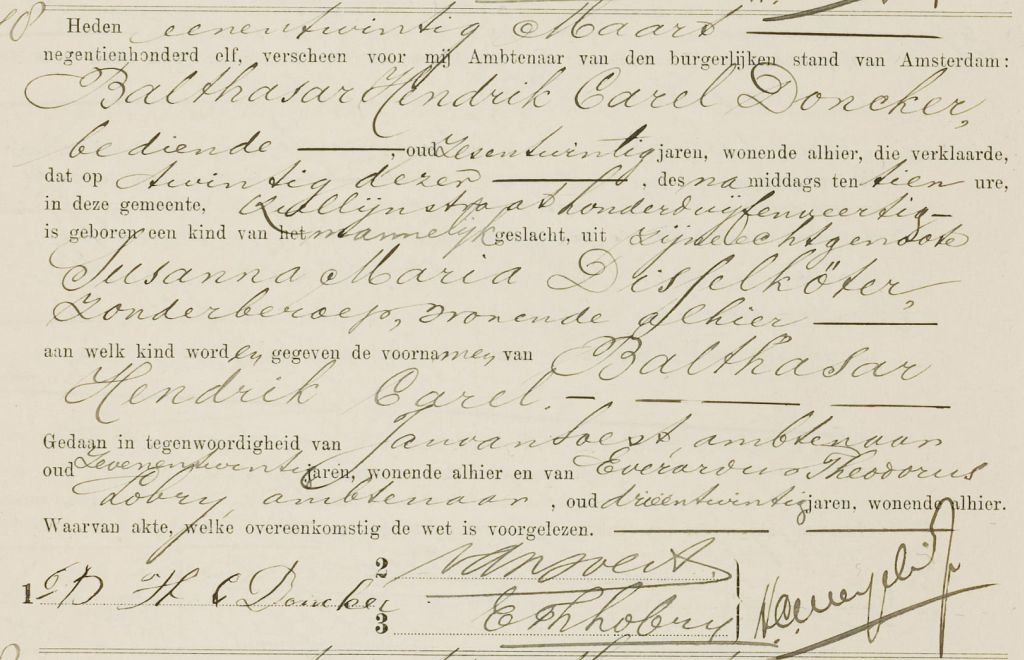 Heden eenentwintig Maart
negentienhonderd elf, verscheen voor mij Ambtenaar van den burgerlijken stand van Amsterdam:
Balthasar Hendrik Carel Doncker,
bediende, oud zesentwintig jaren, wonende alhier, die verklaarde,
dat op twintig dezer, des namiddags ten tien ure,
in deze gemeente, Quellijnstraat honderdvijfenveertig
is geboren een kind van het mannelijk geslacht, uit zijne echtgenoote
Susanna Maria Disselköter,
zonder beroep, wonende alhier
aan welk kind worden gegeven de voornamen van Balthasar
Hendrik Carel.
Gedaan in tegenwoordigheid van Jan van Soest, ambtenaar
oud zevenentwintig jaren, wonende alhier en van Everardus Theodorus
Lobry, ambtenaar, oud drieëntwintig jaren, wonende alhier.
Waarvan akte, welke overeenkomstig de wet is voorgelezen.
1 B H C Doncker
2 van Soest
3 E Th Lobry